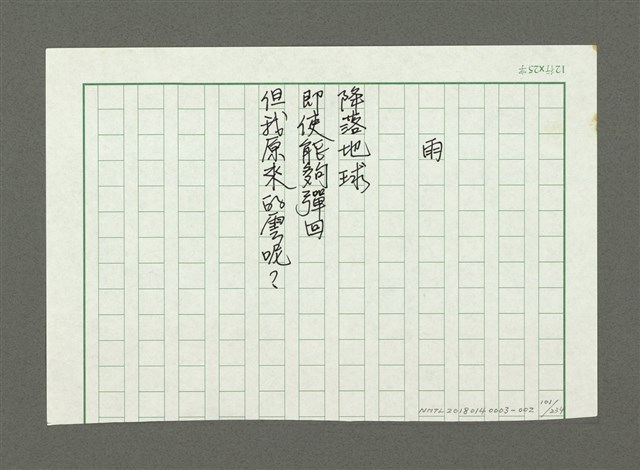 12行×25字
雨
降落地球
即使能夠彈回
但我原來的雲呢？
NMTL20180140003-002
101/239